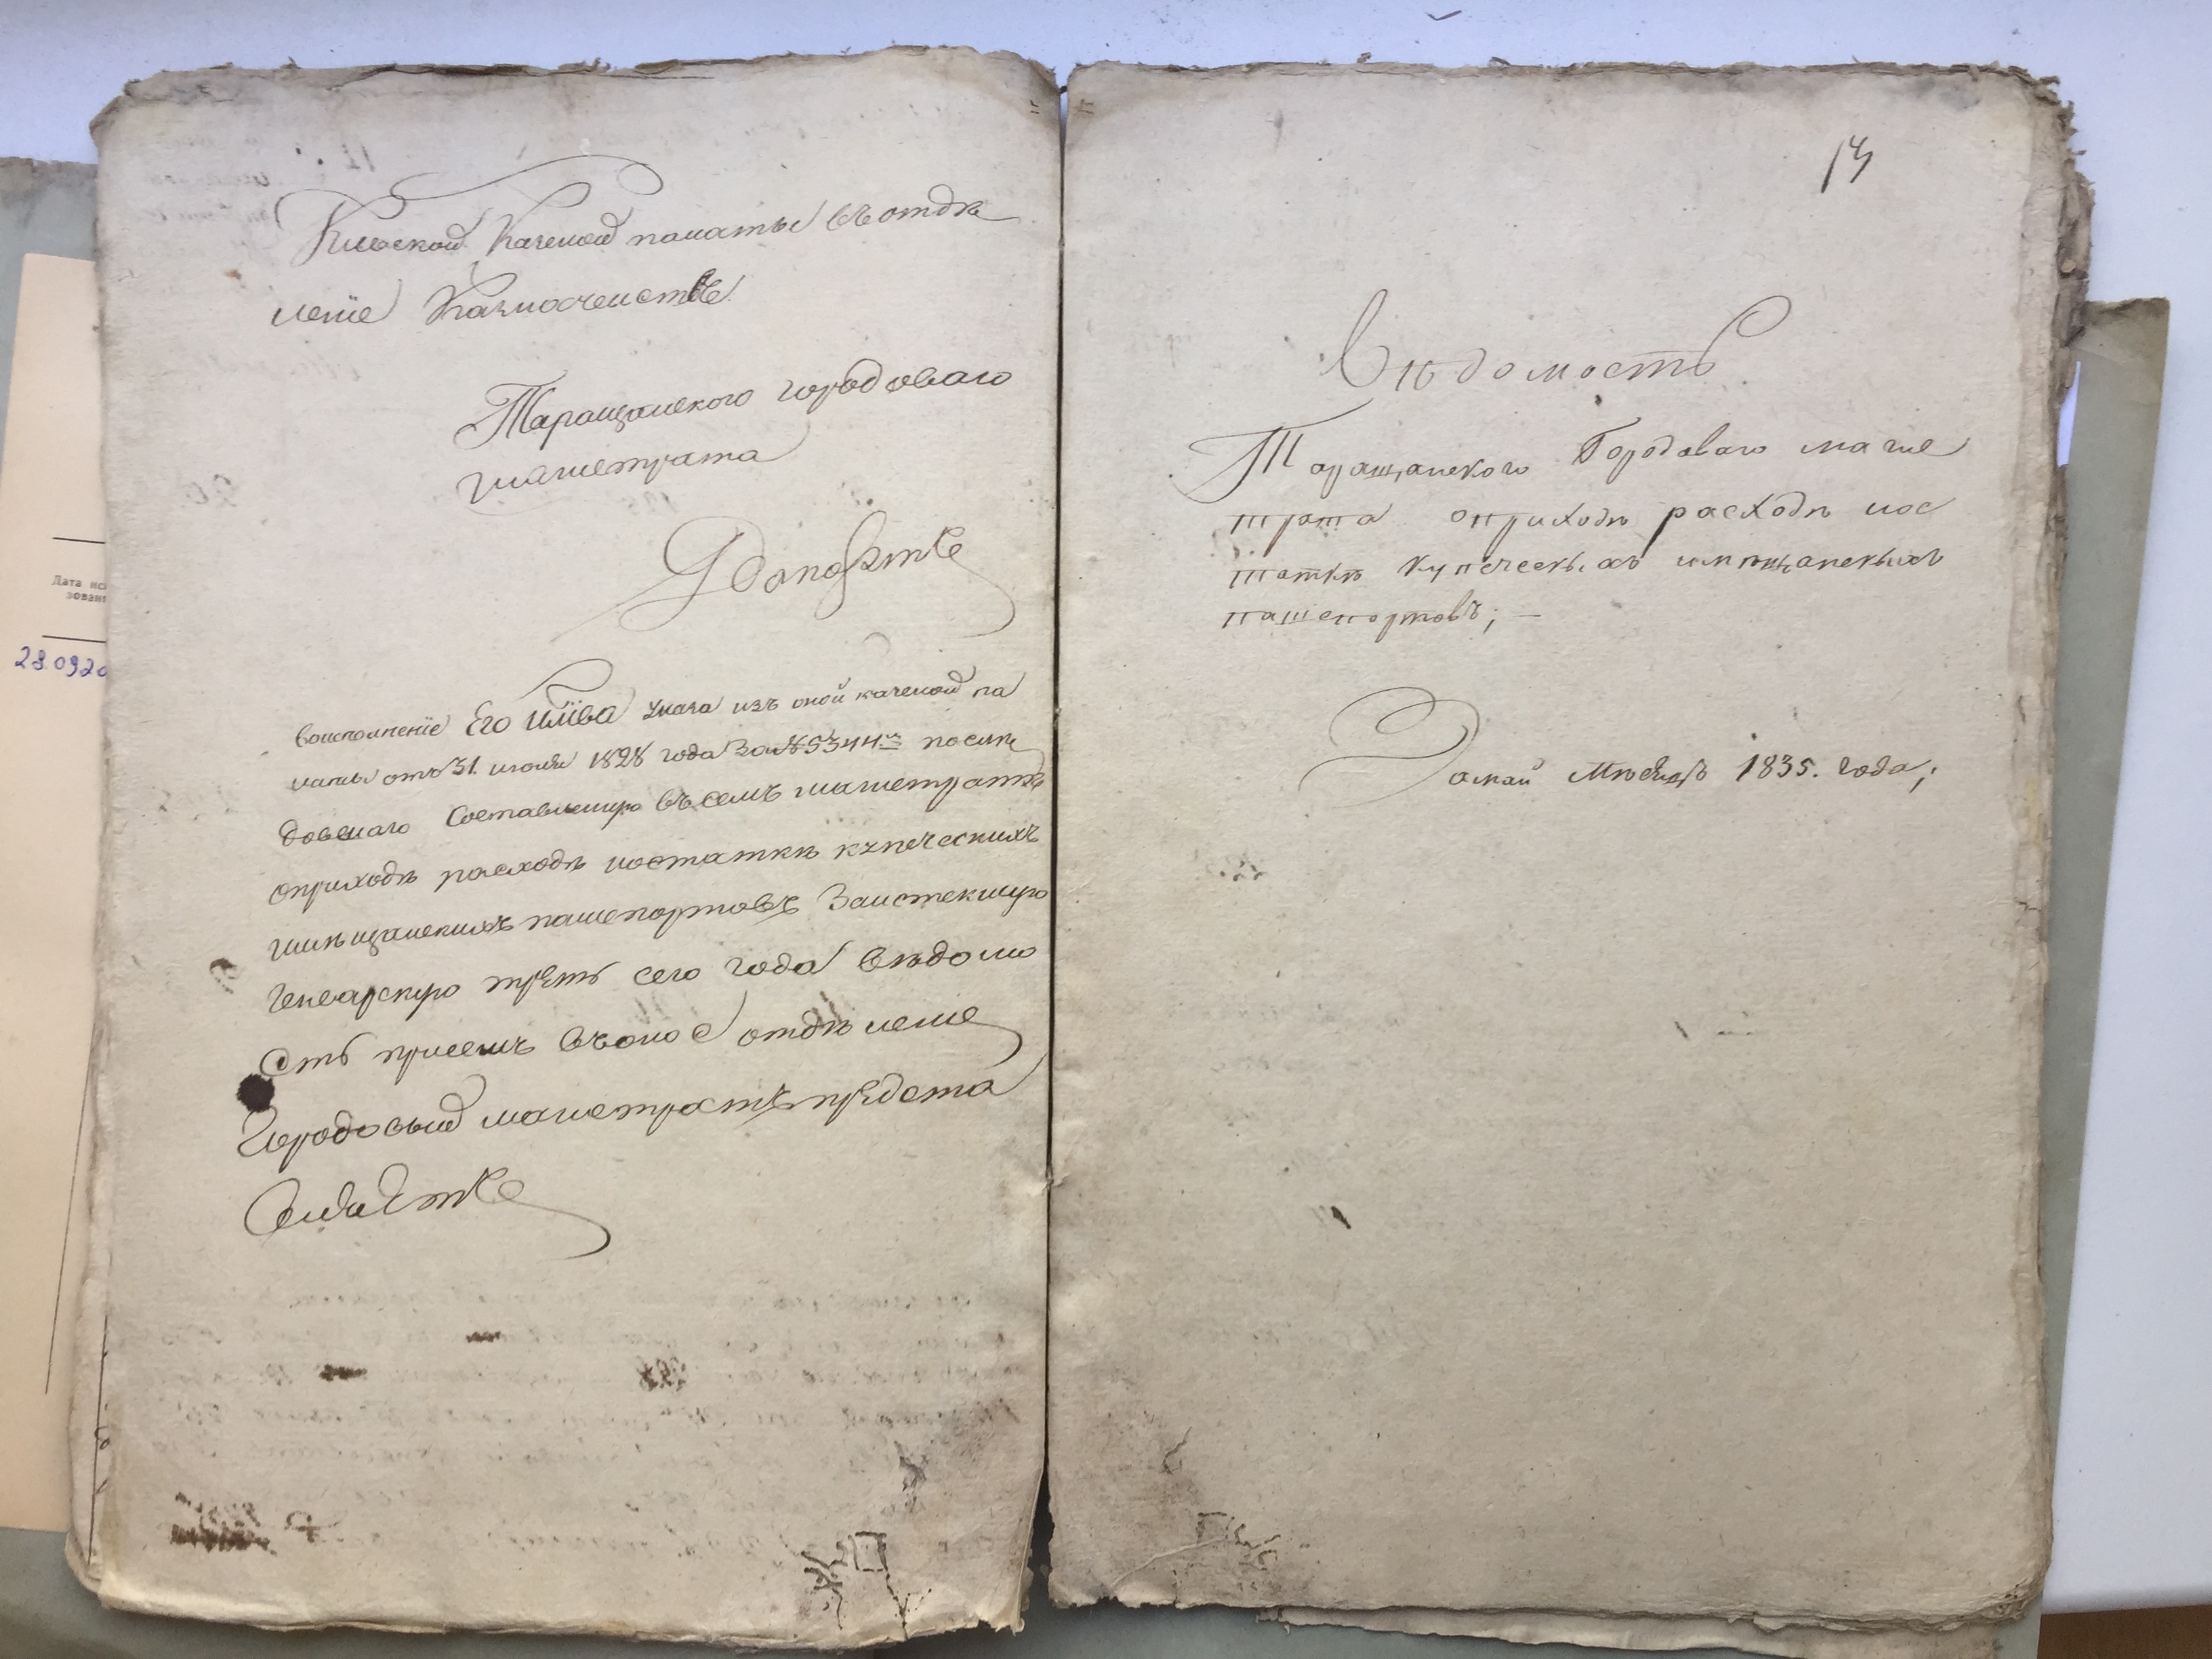 Кіевской Казеной палаты въ отдѣ
леніе Казначейства
Таращанского городоваго
магистрата
воисполненіе Его Им: Ва указа изъ оной казеной па
латы отъ 31. июля 1828 года За № 5344м последо
довшаго Составленную въ семъ магистратѣ
оприходѣ расходѣ иостаткѣ купеческихъ
имѣщанскихъ пашепортовъ Заистекшую
Генварскую треть сего года вѣдомо
сть присемъ въоное отдѣленіе
Городовый магистратъ предста
13
Вѣдомость
Таращанского Городоваго магис
трата оприходѣ расходѣ иос
таткѣ купеческихъ имѣщанскихъ
пашепортовъ; —
За май Мѣсяцъ 1835. года;
Дата исп
зован
28.09.20